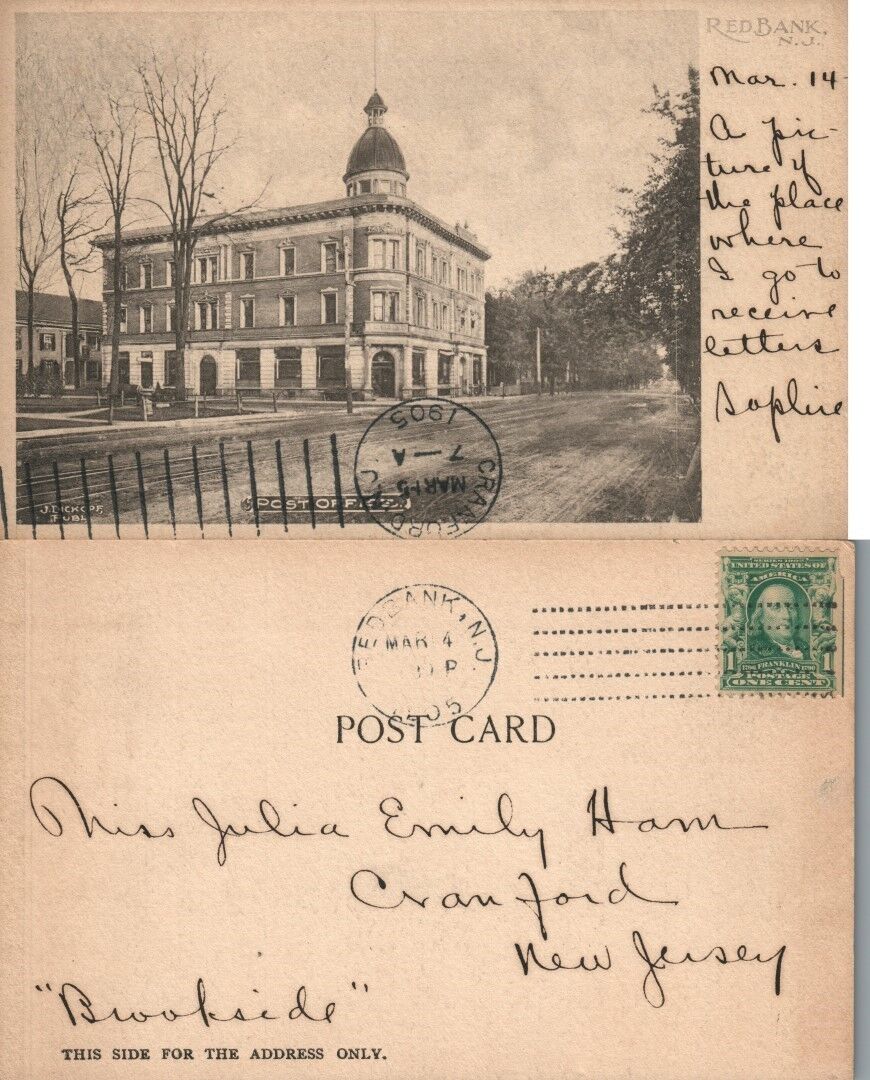 RED BANK,
N.J.
Mar. 14-
A pic-
ture of
the place
where
I go to
receive
letters
Sophie
CRANFORD
MAR 15
7-A
1905
J. DICKOPF,
PUBL
POST OFFICE.
RED BANK, N.J.
MAR 4
P
1905
SERIES 1902
UNITED STATES OF
AMERICA
1 1790 FRANKLIN 1790 1
POSTAGE
ONE CENT
POST CARD
Miss Julia Emily Ham
Cranford
New Jersey
"Brookside"
THIS SIDE FOR THE ADDRESS ONLY.